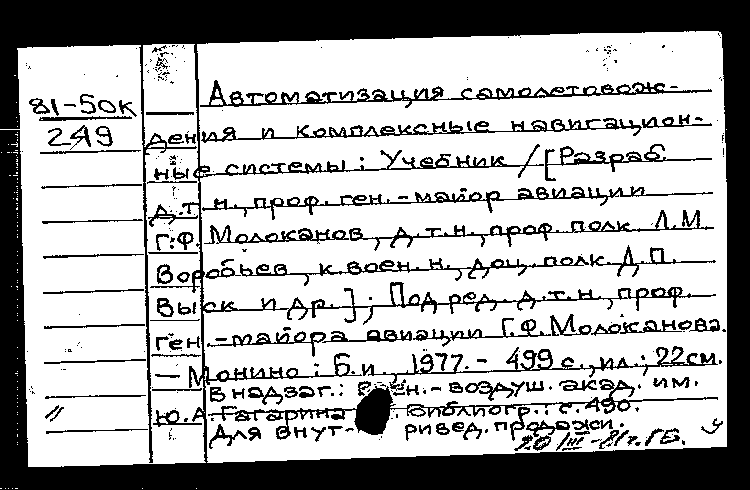 81-50к
249
Автоматизация самолетовож-
дения и комплексные навигацион-
ные системы: Учебник / [Разраб.
д.т.н., проф. ген.-майор авиации
Г.Ф. Молоканов, д.т.н., проф. полк. Л.М.
Воробьев, к.воен.н., доц. полк. Д.П.
Выск и др.]; Под ред. д.т.н., проф.
ген.-майора авиации Г.Ф. Молоканова.
— Монино: Б.и., 1977. - 499 с., ил.; 22см.
В надзаг.: Воен.-воздуш. акад. им.
Ю.А. Гагарина. Библиогр.: с. 490.
Для внут- ривед. продажи.
20/III-81г. ГБ. У
//